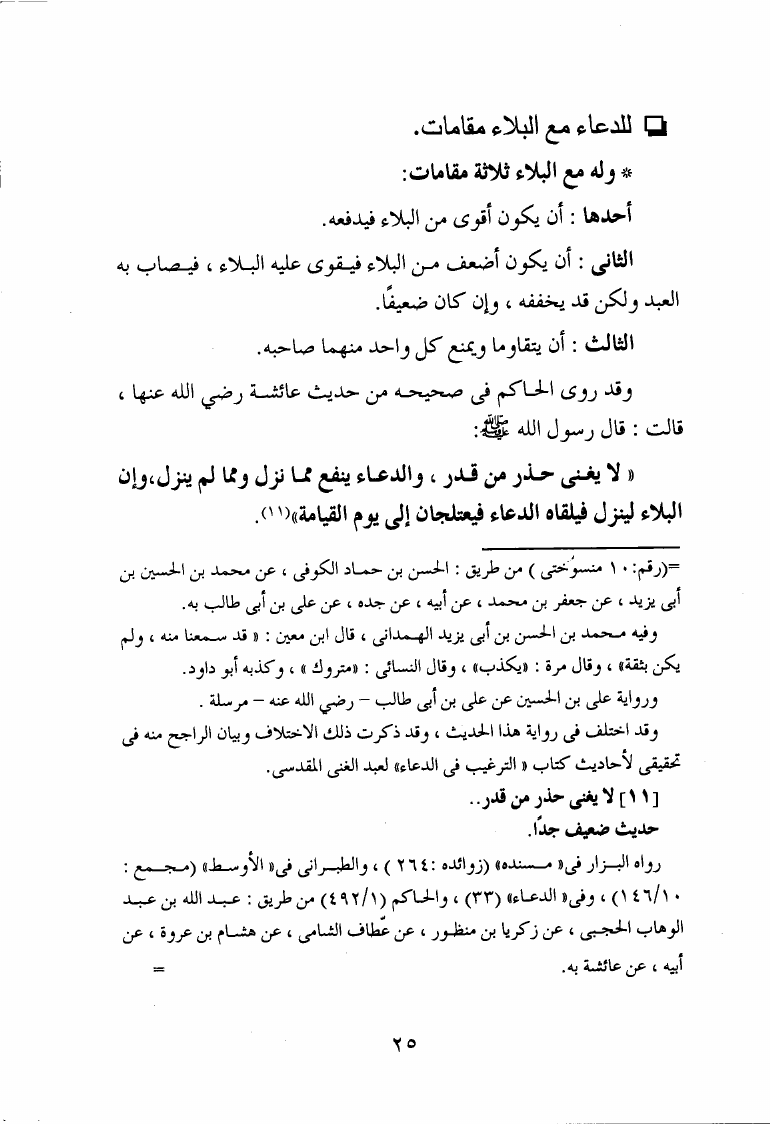 ❑ للدعاء مع البلاء مقامات.
* وله مع البلاء ثلاثة مقامات:
أحدها : أن يكون أقوى من البلاء فيدفعه.
الثانى : أن يكون أضعف من البلاء فيقوى عليه البلاء ، فيصاب به
العبد ولكن قد يخففه ، وإن كان ضعيفًا.
الثالث : أن يتقاوما ويمنع كل واحد منهما صاحبه.
وقد روى الحاكم فى صحيحه من حديث عائشة رضي الله عنها ،
قالت : قال رسول الله ﷺ:
« لا يغنى حذر من قدر ، والدعاء ينفع مما نزل ومما لم ينزل،وإن
البلاء لينزل فيلقاه الدعاء فيعتلجان إلى يوم القيامة»(١١).
=(رقم:١٠ منسوختى ) من طريق : الحسن بن حماد الكوفى ، عن محمد بن الحسين بن
أبى يزيد ، عن جعفر بن محمد ، عن أبيه ، عن جده ، عن على بن أبى طالب به.
وفيه محمد بن الحسن بن أبى يزيد الهمدانى ، قال ابن معين : « قد سمعنا منه ، ولم
يكن بثقة» ، وقال مرة : «يكذب» ، وقال النسائى : «متروك » ، وكذبه أبو داود.
ورواية على بن الحسين عن على بن أبى طالب – رضي الله عنه – مرسلة .
وقد اختلف فى رواية هذا الحديث ، وقد ذكرت ذلك الاختلاف وبيان الراجح منه فى
تحقيقى لأحاديث كتاب « الترغيب فى الدعاء» لعبد الغنى المقدسى.
[١١] لا يغنى حذر من قدر..
حديث ضعيف جدًا.
رواه البزار فى« مسنده» (زوائده :٢٦٤ ) ، والطبرانى فى« الأوسط» (مجمع :
١٤٦/١٠) ، وفى« الدعاء» (٣٣) ، والحاكم (٤٩٢/١) من طريق : عبد الله بن عبد
الوهاب الحجبى ، عن زكريا بن منظور ، عن عطّاف الشامى ، عن هشام بن عروة ، عن
أبيه ، عن عائشة به. =
٢٥